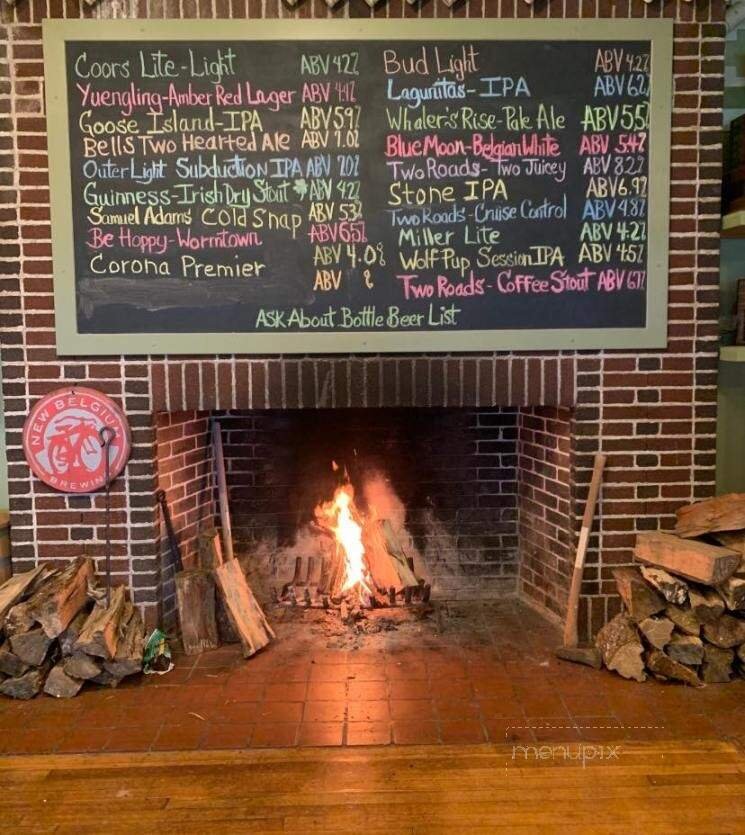 Coors Lite-Light ABV 4.2%
Yuengling-Amber Red Lager ABV 4.4%
Goose Island-IPA ABV 5.9%
Bells Two Hearted Ale ABV 7.0%
Outer Light Subduction IPA ABV 7.0%
Guinness-Irish Dry Stout ABV 4.2%
Samuel Adams Cold Snap ABV 5.3%
Be Hoppy-Wormtown ABV 6.5%
Corona Premier ABV 4.0%
ABV %
Bud Light ABV 4.2%
Lagunitas-IPA ABV 6.2%
Whaler's Rise-Pale Ale ABV 5.5%
Blue Moon-Belgian White ABV 5.4%
Two Roads-Two Juicey ABV 8.2%
Stone IPA ABV 6.9%
Two Roads-Cruise Control ABV 4.8%
Miller Lite ABV 4.2%
Wolf Pup Session IPA ABV 4.5%
Two Roads-Coffee Stout ABV 6.7%
Ask About Bottle Beer List
NEW BELGIUM
BREWING
menupix